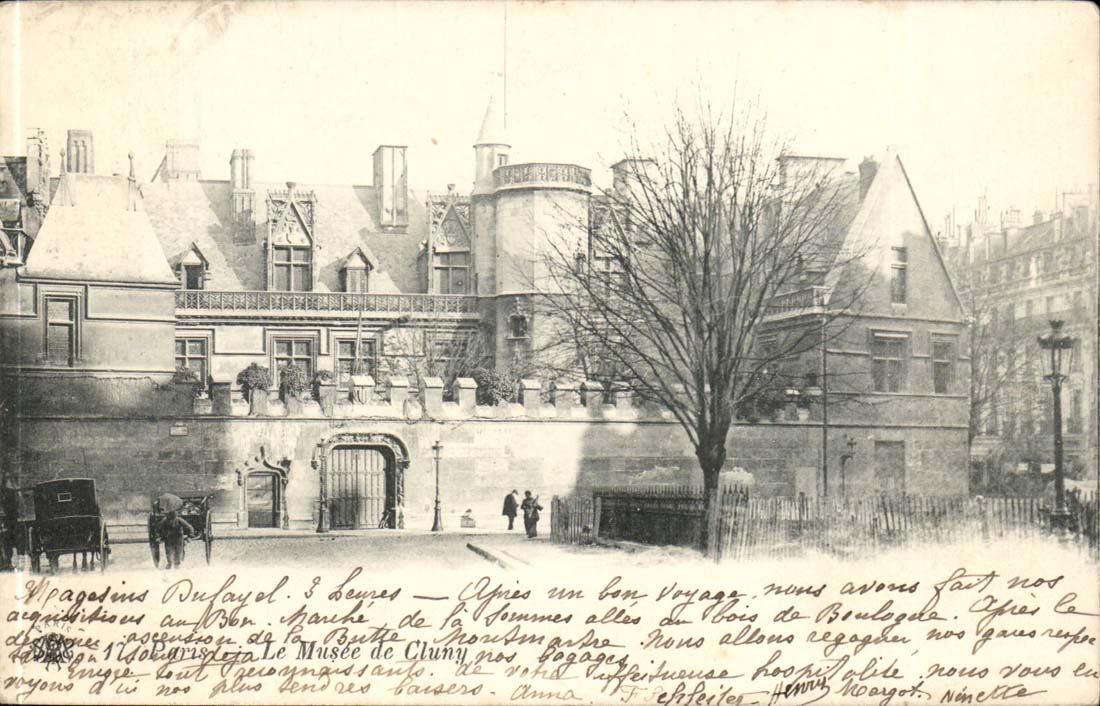 Magasins Dufayel. 3 heures — Après un bon voyage, nous avons fait nos
acquisitions au Bon-Marché, de là sommes allés au bois de Boulogne. Après le
ascension de la Butte Montmartre. Nous allons regagner nos gares respec
où sont déjà nos bagages
17 Paris. - Le Musée de Cluny
tout reconnaissants de votre affectueuse hospitalité, nous vous en
voyons d'ici nos plus tendres baisers. Anna Henry Margot. Ninette